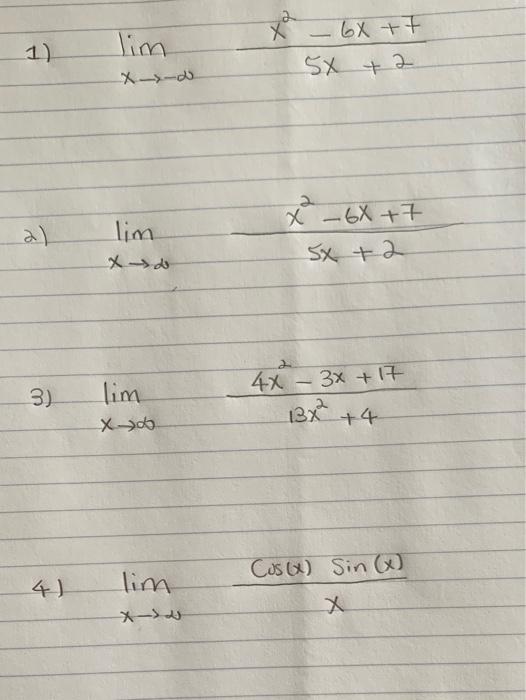 1) lim x→-∞ x² - 6x + 7 / 5x + 2
2) lim x→∞ x² - 6x + 7 / 5x + 2
3) lim x→∞ 4x² - 3x + 17 / 13x² + 4
4) lim x→∞ Cos(x) Sin(x) / x